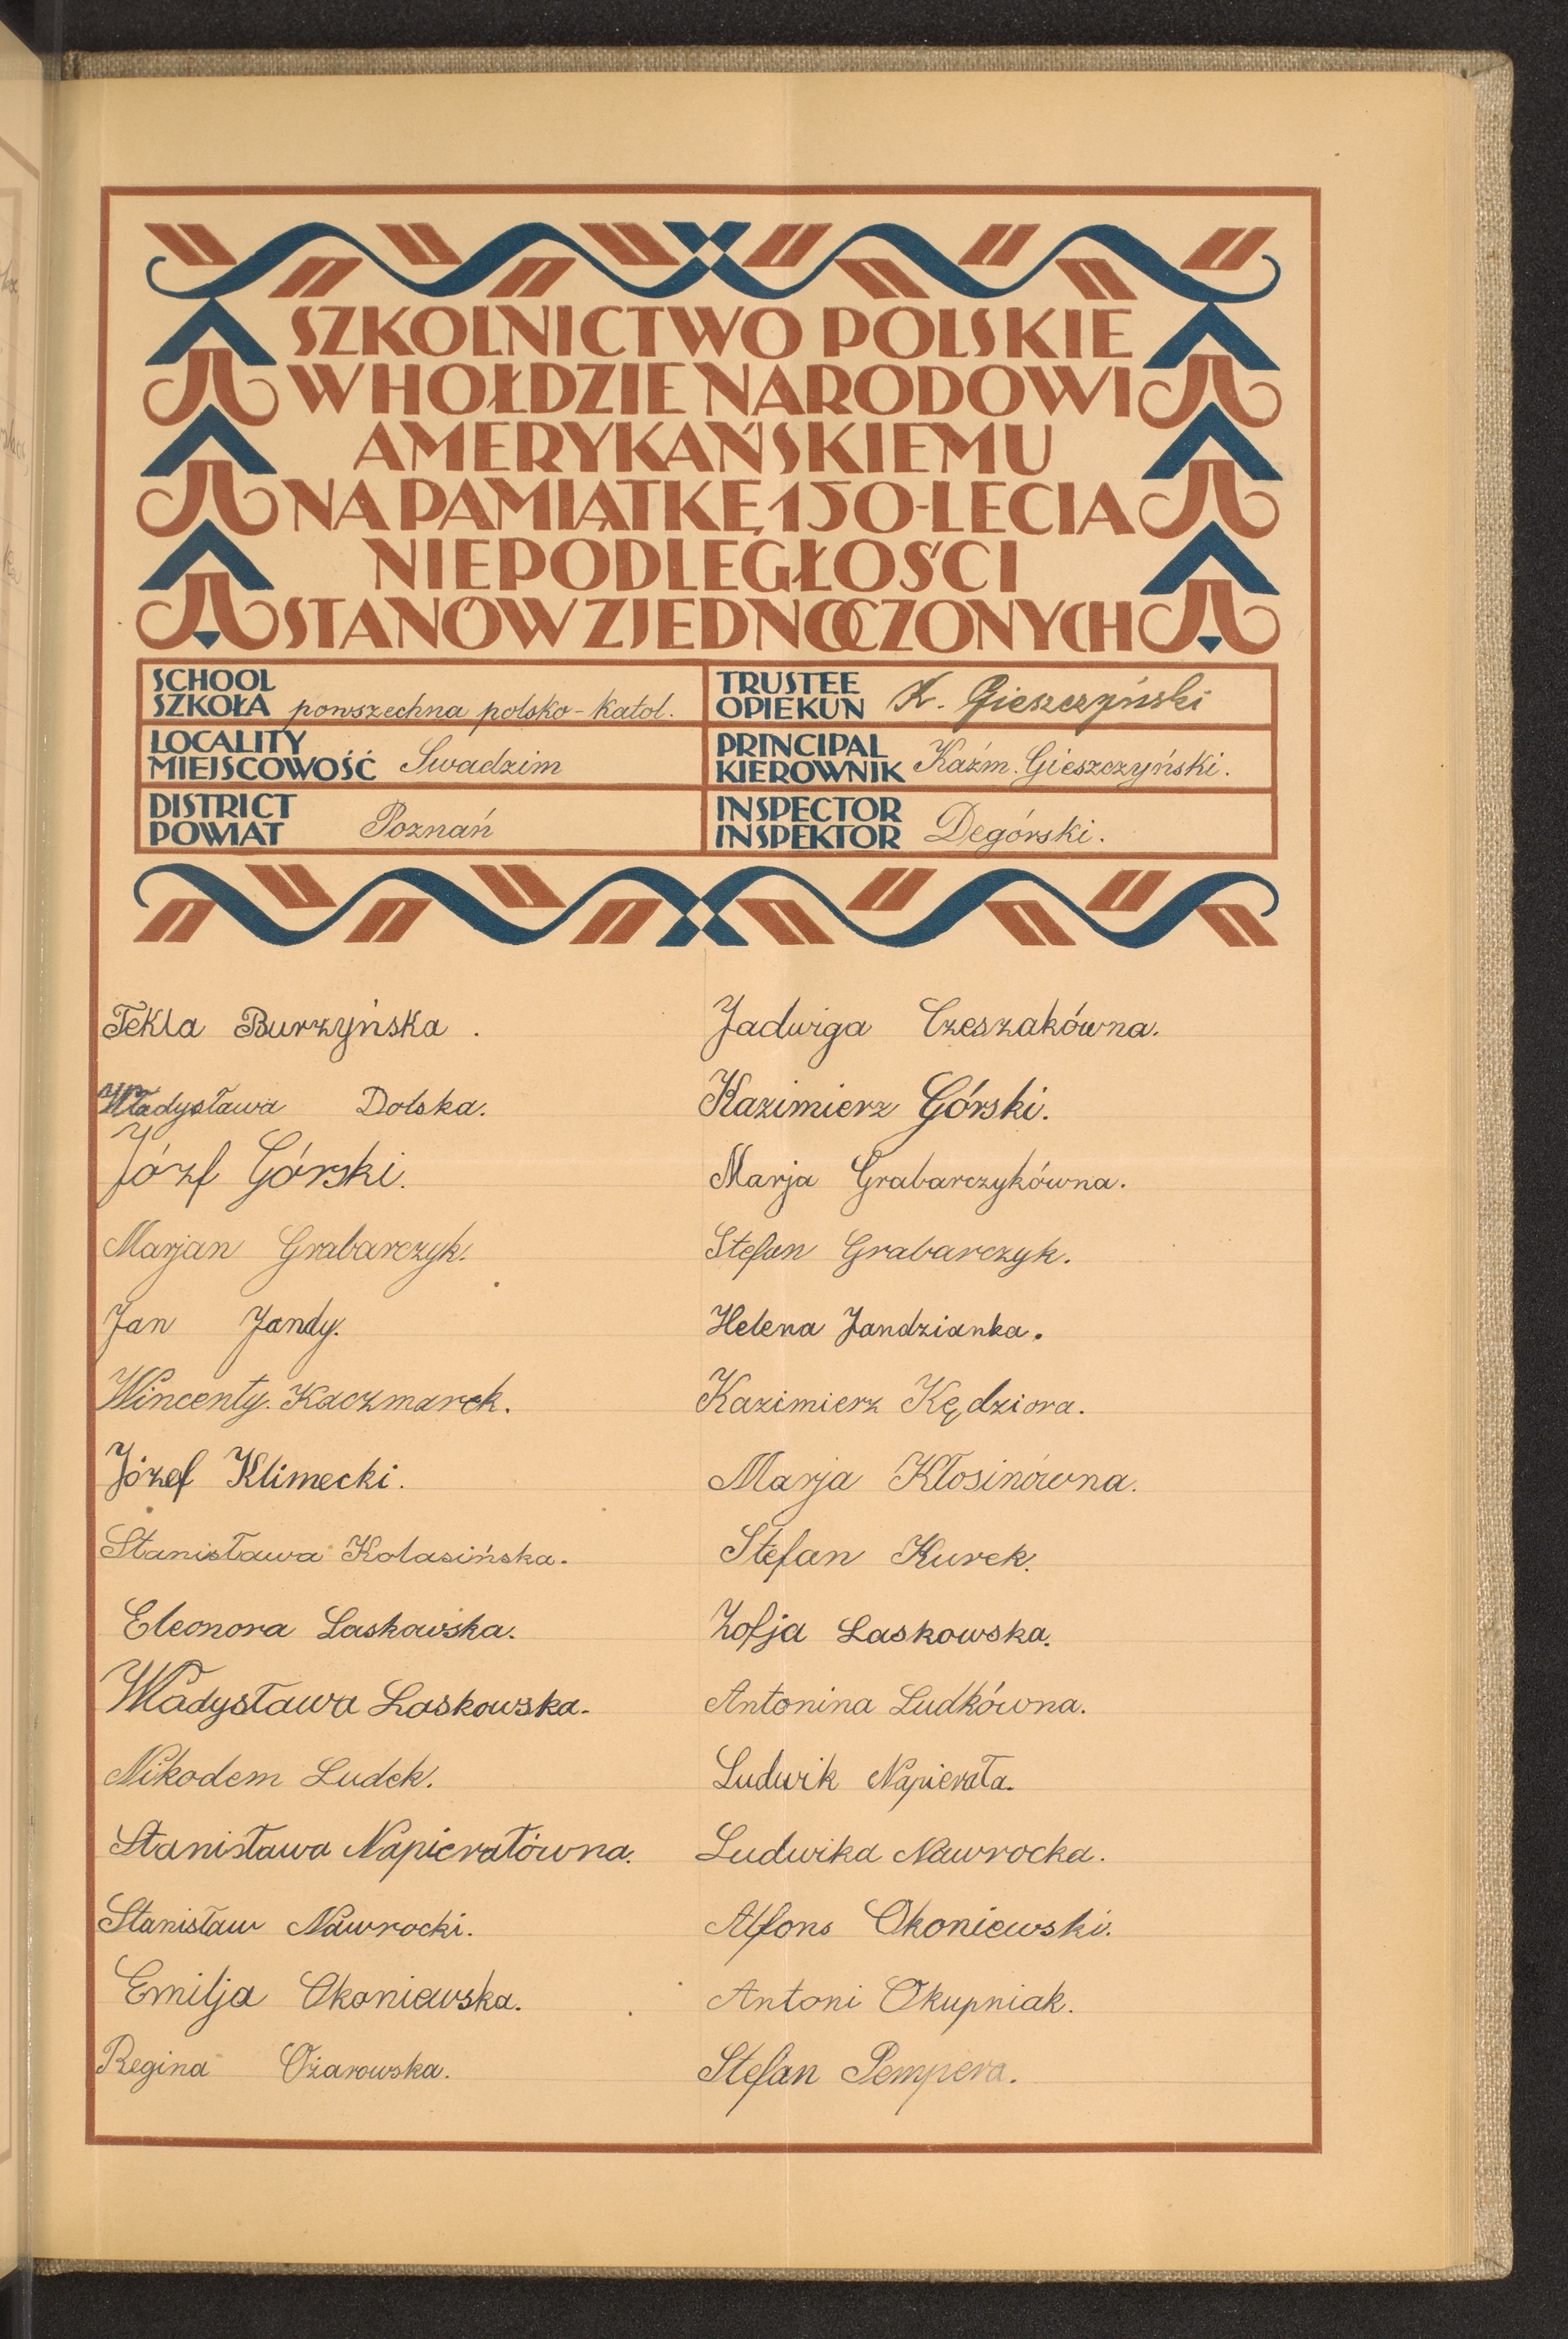 SZKOLNICTWO POLSKIE
W HOŁDZIE NARODOWI
AMERYKAŃSKIEMU
NA PAMIĄTKĘ 150-LECIA
NIEPODLEGŁOŚCI
STANÓW ZJEDNOCZONYCH
SCHOOL
SZKOŁA powszechna polsko-katol.
TRUSTEE
OPIEKUN K. Gieszczyński
LOCALITY
MIEJSCOWOŚĆ Swadzim
PRINCIPAL
KIEROWNIK Kaźm. Gieszczyński.
DISTRICT
POWIAT Poznań
INSPECTOR
INSPEKTOR Degórski.
Tekla Burzyńska.
Władysława Dolska.
Józf Górski.
Marjan Grabarczyk.
Jan Jandy.
Wincenty. Kaczmarek.
Józef Klimecki.
Stanisława Kolasińska.
Eleonora Laskowska.
Władysława Laskowska.
Nikodem Ludek.
Stanisława Napierałówna.
Stanisław Nawrocki.
Emilja Okoniewska.
Regina Ożarowska.
Jadwiga Czeszakówna.
Kazimierz Górski.
Marja Grabarczykówna.
Stefan Grabarczyk.
Helena Jandzianka.
Kazimierz Kędziora.
Marja Kłosinówna.
Stefan Kurek.
Zofja Laskowska.
Antonina Ludkówna.
Ludwik Napierała.
Ludwika Nawrocka.
Alfons Okoniewski.
Antoni Okupniak.
Stefan Pempera.